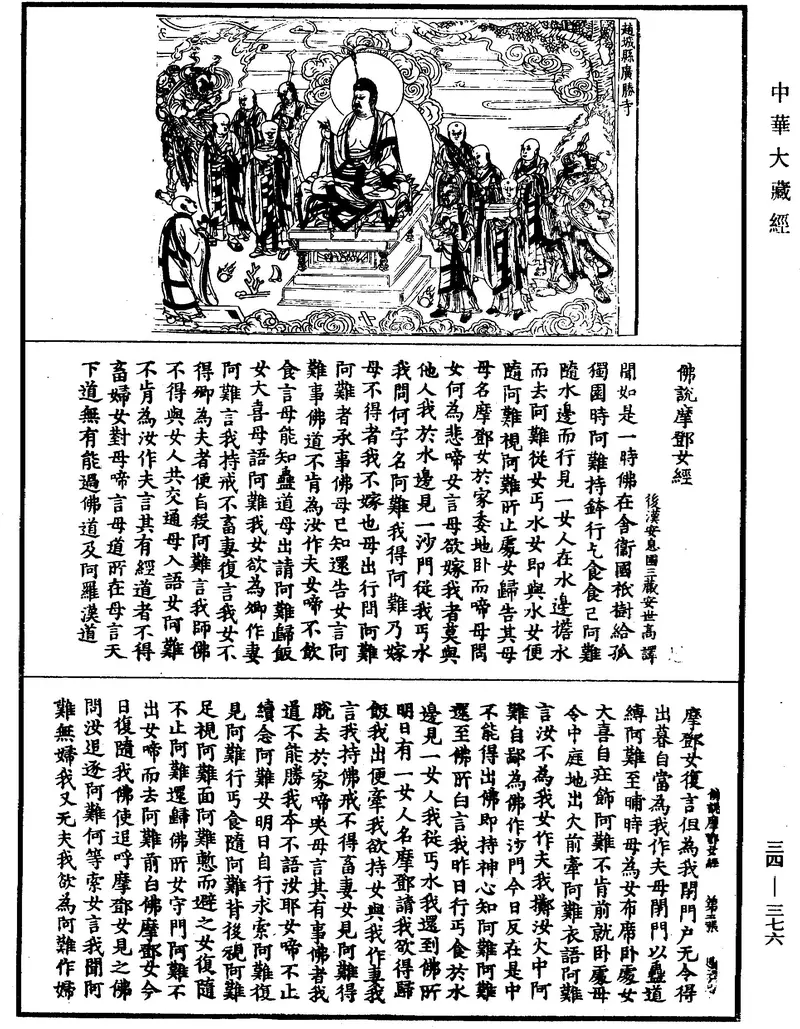 中華大藏經
趙城縣廣勝寺
佛說摩鄧女經
後漢安息國三藏安世高譯
聞如是一時佛在舍衛國祇樹給孤
獨園時阿難持鉢行乞食食已阿難
隨水邊而行見一女人在水邊擔水
而去阿難從女丐水女即與水女便
隨阿難視阿難所止處女歸告其母
母名摩鄧女於家委地卧而啼母問
女何為悲啼女言母欲嫁我者莫與
他人我於水邊見一沙門從我丐水
我問何字名阿難我得阿難乃嫁
母不得者我不嫁也母出行問阿難
阿難者承事佛母已知還告女言阿
難事佛道不肯為汝作夫女啼不飲
食言母能知蠱道母出請阿難歸飯
女大喜母語阿難我女欲為卿作妻
阿難言我持戒不畜妻復言我女不
得卿為夫者便自殺阿難言我師佛
不得與女人共交通母入語女阿難
不肯為汝作夫言其有經道者不得
畜婦女對母啼言母道所在母言天
下道無有能過佛道及阿羅漢道
摩鄧女復言但為我閉門户无令得
出暮自當為我作夫母閉門以蠱道
縛阿難至晡時母為女布席卧處女
大喜自莊飾阿難不肯前就卧處母
令中庭地出火前牽阿難衣語阿難
言汝不為我女作夫我擲汝火中阿
難自鄙為佛作沙門今日反在是中
不能得出佛即持神心知阿難阿難
還至佛所白言我昨日行丐食於水
邊見一女人我從丐水我還到佛所
明日有一女人名摩鄧請我欲得歸
飯我出便牽我欲持女與我作妻我
言我持佛戒不得畜妻女見阿難得
脫去於家啼哭母言其有事佛者我
道不能勝我本不語汝耶女啼不止
續念阿難女明日自行求索阿難復
見阿難行丐食隨阿難背後視阿難
足視阿難面阿難慙而避之女復隨
不止阿難還歸佛所女守門阿難不
出女啼而去阿難前白佛摩鄧女今
日復隨我佛使追呼摩鄧女見之佛
問汝追逐阿難何等索女言我聞阿
難無婦我又无夫我欲為阿難作婦
佛說摩鄧女經 第二張
三四—三七六